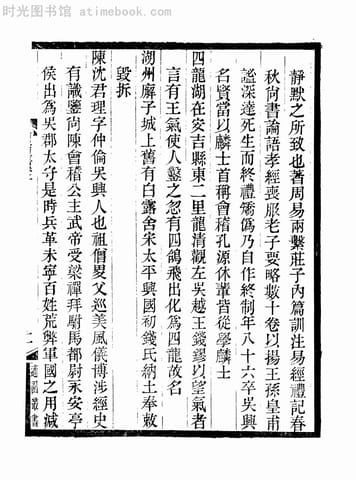 时光图书馆 — atimebook.com
靜默之所致也著周易兩繫莊子內篇訓注易經禮記春
秋尙書論語孝經喪服老子要略數十卷以揚王孫皇甫
謐深達死生而終禮矯僞乃自作終制年八十六卒吳興
名賢當以麟士首稱會稽孔源休輩皆從學麟士
四龍湖在安吉縣東二里龍清觀左吳越王錢鏐以望氣者
言有王氣使人鑿之忽有四鴿飛出化爲四龍故名
湖州廨子城上舊有白露舍朱太平興國初錢氏納土奉敕
毀拆
陳沈君理字仲倫吳興人也祖僧夏父巡美風儀博涉經史
有識鑒尙陳會稽公主武帝受梁禪拜駙馬都尉永安亭
侯出爲吳郡太守是時兵革未寧百姓荒弊軍國之用減